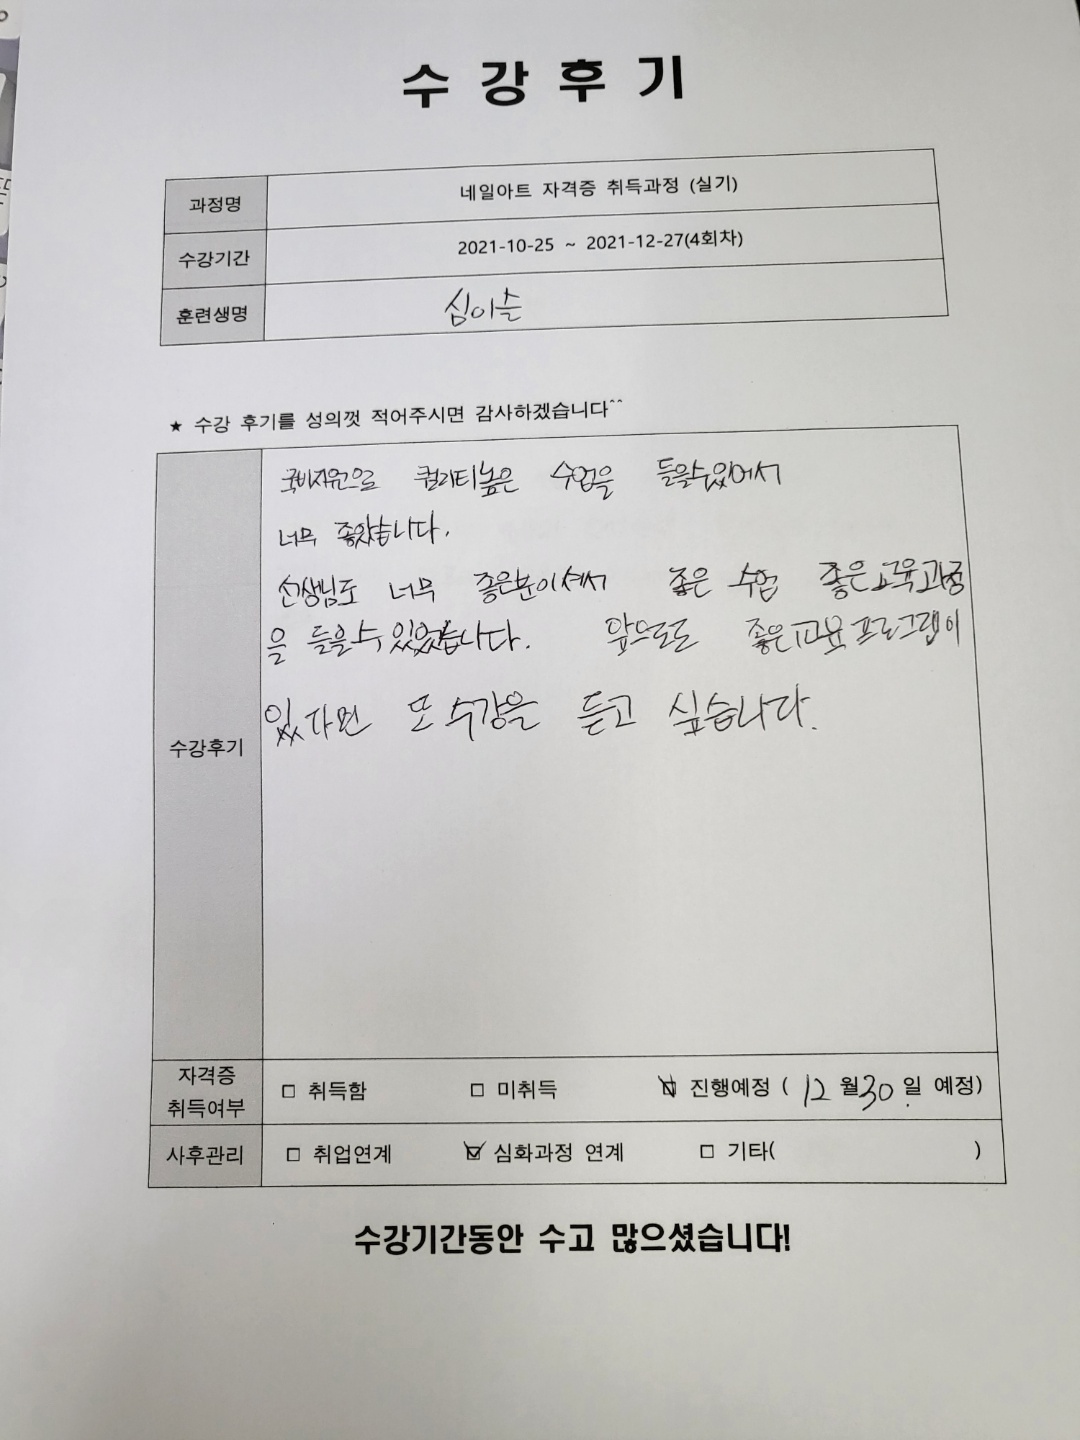 수 강 후 기
과정명 네일아트 자격증 취득과정 (실기)
수강기간 2021-10-25 ~ 2021-12-27(4회차)
훈련생명 심이슬
★ 수강 후기를 성의껏 적어주시면 감사하겠습니다^^
국비지원으로 퀄리티높은 수업을 들을수있어서
너무 좋았습니다.
선생님도 너무 좋은분이셔서 좋은 수업 좋은교육과정
을 들을수 있었습니다. 앞으로도 좋은교육프로그램이
있다면 또 수강을 듣고 싶습니다.
수강후기
자격증
취득여부
□ 취득함 □ 미취득 ☑ 진행예정 ( 12 월 30 일 예정)
사후관리 □ 취업연계 ☑ 심화과정 연계 □ 기타( )
수강기간동안 수고 많으셨습니다!